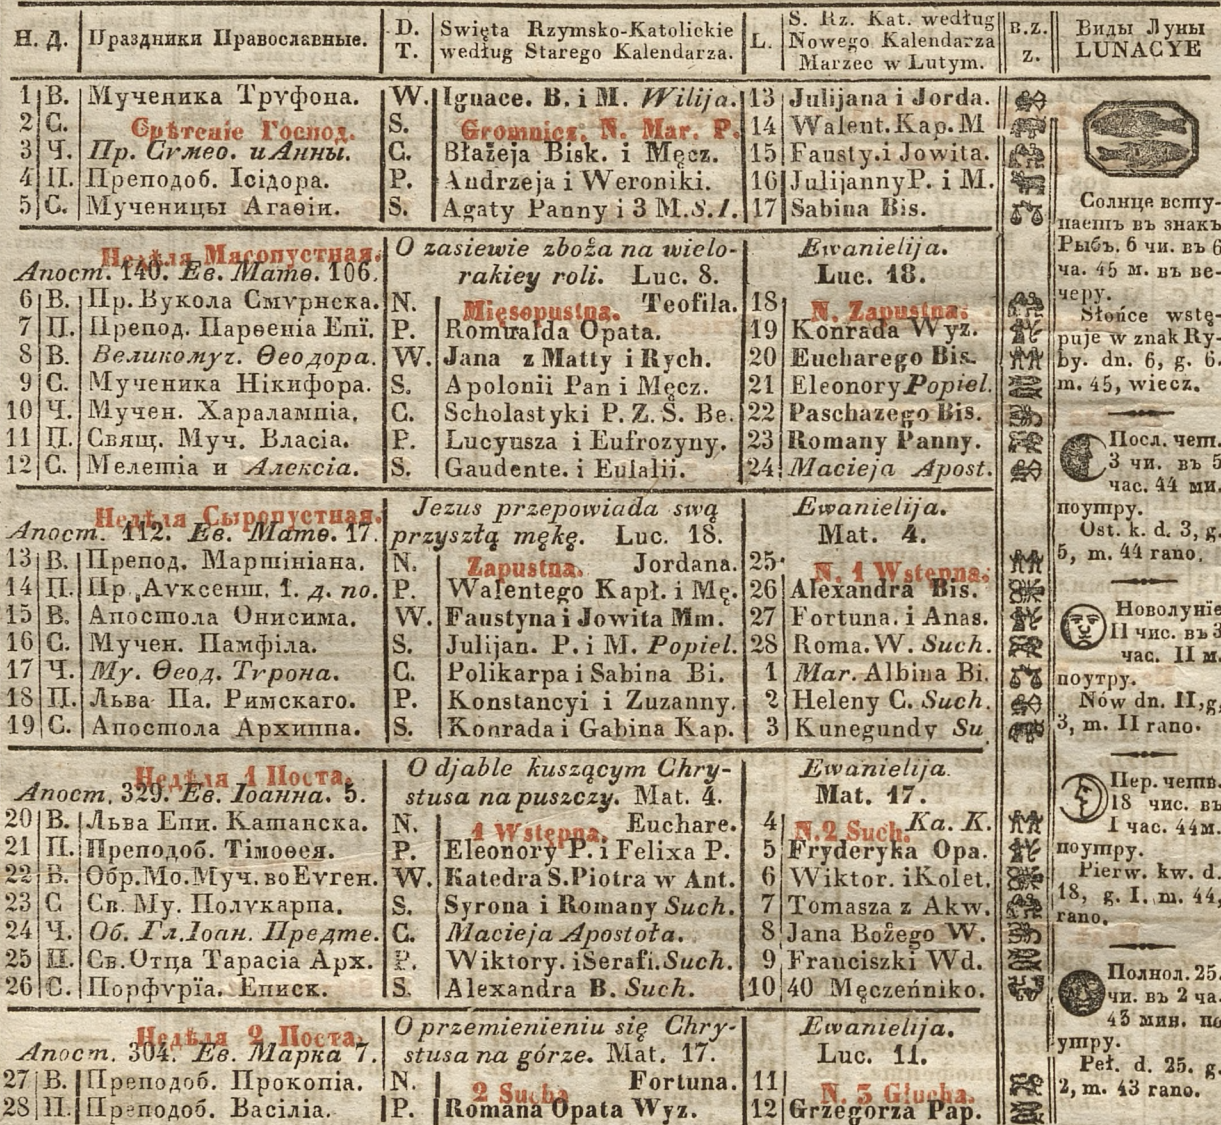 Н. Д. Праздники Православные. D. T. Swięta Rzymsko-Katolickie według Starego Kalendarza. L. S. Rz. Kat. według Nowego Kalendarza Marzec w Lutym. B.Z. z. Виды Луны LUNACYE
1 В. Мученика Труфона. W. Ignace. B. i M. Wilija. 13 Julijana i Jorda.
2 С. Срѣтеніе Господ. S. Gromnicz. N. Mar. P. 14 Walent. Kap. M
3 Ч. Пр. Сѵмео. и Анны. C. Błażeja Bisk. i Męcz. 15 Fausty. i Jowita.
4 П. Преподоб. Ісідора. P. Andrzeja i Weroniki. 16 Julijanny P. i M.
5 С. Мученицы Агаѳіи. S. Agaty Panny i 3 M. S. 1. 17 Sabina Bis.
Недѣля Мясопустная. O zasiewie zboża na wielo- Ewanielija.
Апост. 140. Ев. Матѳ. 106. rakiey roli. Luc. 8. Luc. 18.
6 В. Пр. Вукола Смѵрнска. N. Mięsopustna. Teofila. 18 N. Zapustna.
7 П. Препод. Парѳеніа Епї. P. Romualda Opata. 19 Konrada Wyz.
8 В. Великомуч. Ѳеодора. W. Jana z Matty i Rych. 20 Eucharego Bis.
9 С. Мученика Нікифора. S. Apolonii Pan i Męcz. 21 Eleonory Popiel.
10 Ч. Мучен. Харалампіа. C. Scholastyki P. Z. S. Be. 22 Paschazego Bis.
11 П. Свящ. Муч. Власіа. P. Lucyusza i Eufrozyny. 23 Romany Panny.
12 С. Мелетіа и Алексіа. S. Gaudente. i Eulalii. 24 Macieja Apost.
Недѣля Сыропустная. Jezus przepowiada swą Ewanielija.
Апост. 112. Ев. Матѳ. 17. przysztą mękę. Luc. 18. Mat. 4.
13 В. Препод. Мартініана. N. Zapustna. Jordana. 25 N. 1 Wstępna.
14 П. Пр. Аѵксент. 1. д. по. P. Walentego Kapł. i Mę. 26 Alexandra Bis.
15 В. Апостола Онисима. W. Faustyna i Jowita Mm. 27 Fortuna. i Anas.
16 С. Мучен. Памфіла. S. Julijan. P. i M. Popiel. 28 Roma. W. Such.
17 Ч. Му. Ѳеод. Тѵрона. C. Polikarpa i Sabina Bi. 1 Mar. Albina Bi.
18 П. Льва Па. Римскаго. P. Konstancyi i Zuzanny. 2 Heleny C. Such.
19 С. Апостола Архиппа. S. Konrada i Gabina Kap. 3 Kunegundy Su
Недѣля 1 Поста. O djable kuszącym Chry- Ewanielija.
Апост. 329. Ев. Іоанна. 5. stusa na puszczy. Mat. 4. Mat. 17.
20 В. Льва Епи. Катанска. N. 1 Wstępna. Euchare. 4 N. 2 Such. Ka. K.
21 П. Преподоб. Тімоѳея. P. Eleonory P. i Felixa P. 5 Fryderyka Opa.
22 В. Обр. Мо. Муч. во Еѵген. W. Katedra S. Piotra w Ant. 6 Wiktor. i Kolet.
23 С Св. Му. Полѵкарпа. S. Syrona i Romany Such. 7 Tomasza z Akw.
24 Ч. Об. Гл. Іоан. Предте. C. Macieja Apostoła. 8 Jana Bożego W.
25 П. Св. Отца Тарасіа Арх. P. Wiktory. i Serafi. Such. 9 Franciszki Wd.
26 С. Порфѵрїа. Еписк. S. Alexandra B. Such. 10 40 Męczeńniko.
Недѣля 2 Поста. O przemienieniu się Chry- Ewanielija.
Апост. 304. Ев. Марка 7. stusa na górze. Mat. 17. Luc. 11.
27 В. Преподоб. Прокопіа. N. 2 Sucha Fortuna. 11 N. 3 Głucha.
28 П. Преподоб. Васіліа. P. Romana Opata Wyz. 12 Grzegorza Pap.
Солнце всту-
паетъ въ знакъ
Рыбъ. 6 чи. въ 6
ча. 45 м. въ ве-
черу.
Słońce wstę-
puje w znak Ry-
by. dn. 6, g. 6.
m. 45, wiecz.
Посл. чет.
3 чи. въ 5
час. 44 ми.
поутру.
Ost. k. d. 3, g.
5, m. 44 rano.
Новолунїе
11 чис. въ 3
час. 11 м.
поутру.
Nów dn. 11, g,
3, m. 11 rano.
Пер. четв.
18 чис. въ
1 час. 44м.
поутру.
Pierw. kw. d.
18, g. 1. m. 44,
rano.
Полнол. 25.
чи. въ 2 ча.
43 мин. по
утру.
Peł. d. 25. g.
2, m. 43 rano.